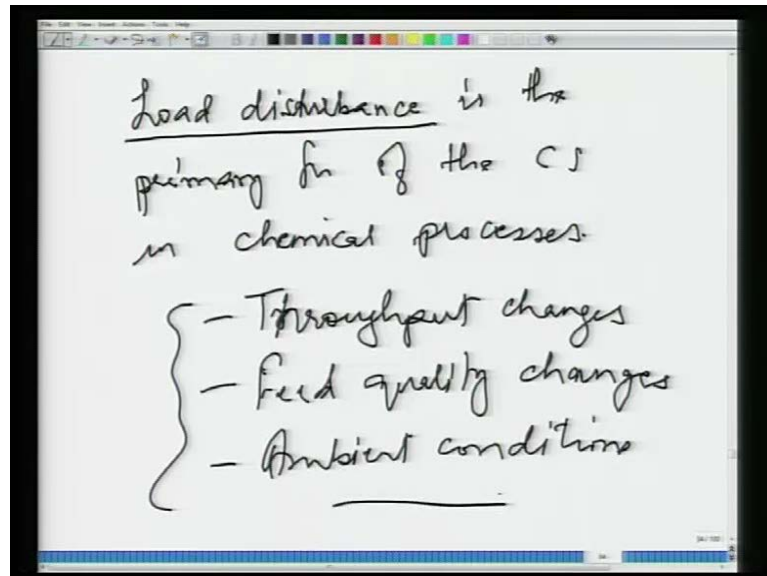 File Edit View Insert Actions Tools Help
Load disturbance is the
primary fn of the CS
in chemical processes.
- Throughput changes
- Feed quality changes
- Ambient conditions